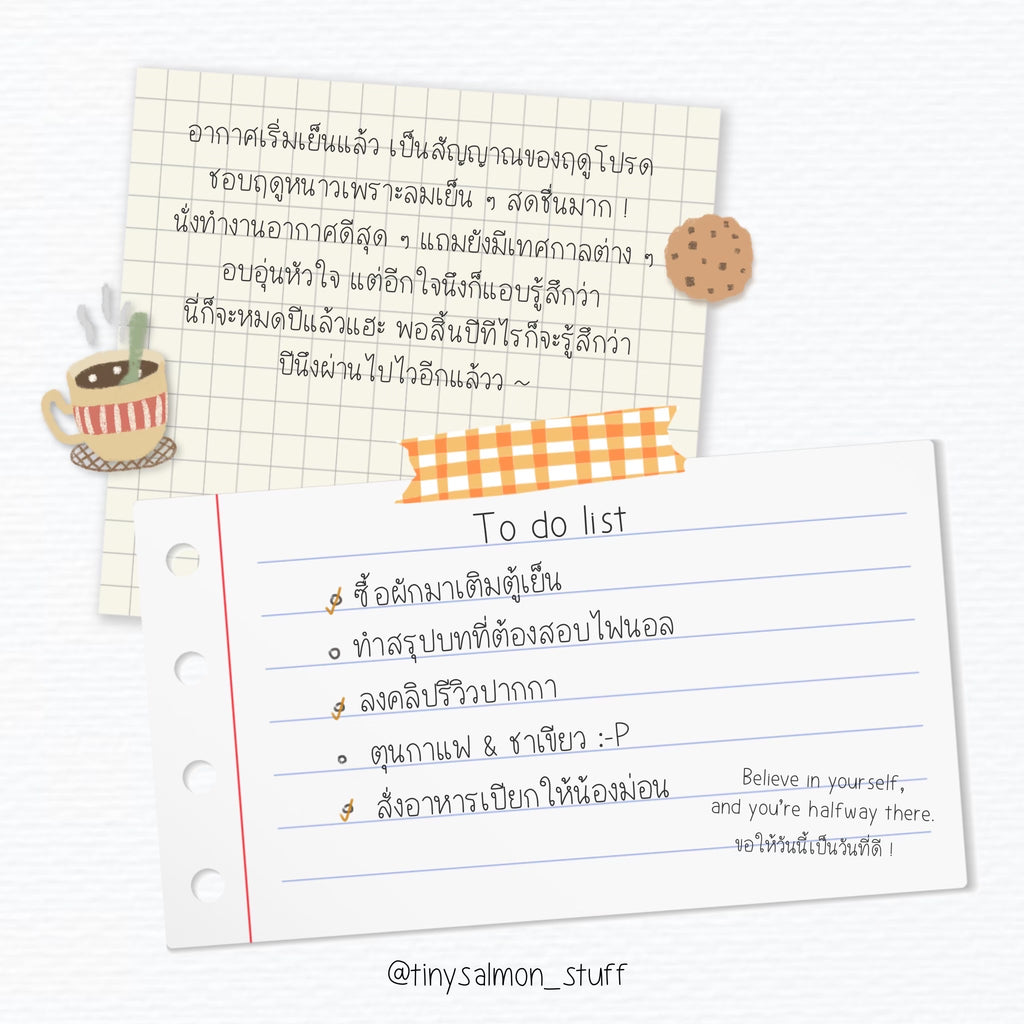 อากาศเริ่มเย็นแล้ว เป็นสัญญาณของฤดูโปรด
ชอบฤดูหนาวเพราะลมเย็น ๆ สดชื่นมาก !
นั่งทำงานอากาศดีสุด ๆ แถมยังมีเทศกาลต่าง ๆ
อบอุ่นหัวใจ แต่อีกใจนึงก็แอบรู้สึกว่า
นี่ก็จะหมดปีแล้วแฮะ พอสิ้นปีทีไรก็จะรู้สึกว่า
ปีนึงผ่านไปไวอีกแล้วว ~
To do list
ซื้อผักมาเติมตู้เย็น
ทำสรุปบทที่ต้องสอบไฟนอล
ลงคลิปรีวิวปากกา
ตุนกาแฟ & ชาเขียว :-P
สั่งอาหารเปียกให้น้องม่อน
Believe in yourself,
and you're halfway there.
ขอให้วันนี้เป็นวันที่ดี !
@tinysalmon_stuff